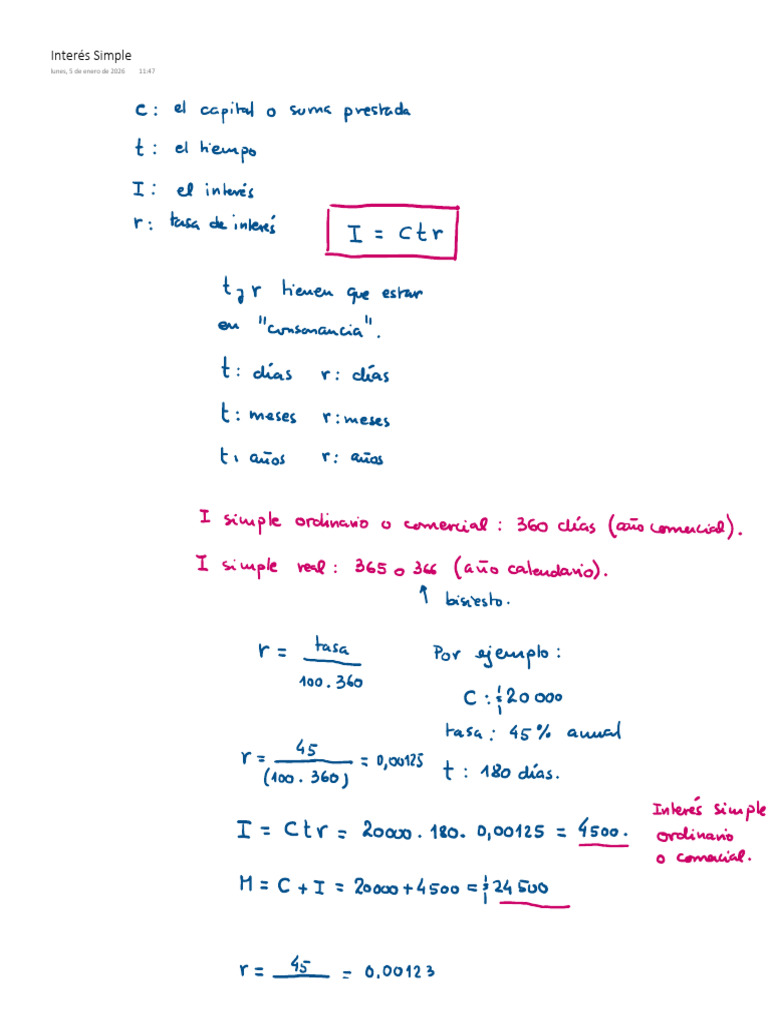 Interés Simple
lunes, 5 de enero de 2026 11:47
C: el capital o suma prestada
t: el tiempo
I: el interés
r: tasa de interés
I = Ctr
t y r tienen que estar
en "consonancia".
t: días r: días
t: meses r: meses
t: años r: años
I simple ordinario o comercial: 360 días (año comercial).
I simple real: 365 o 366 (año calendario).
↑ bisiesto.
r = tasa / 100.360
Por ejemplo:
C: $20 000
tasa: 45% anual
t: 180 días.
r = 45 / (100.360) = 0,00125
I = Ctr = 20000.180.0,00125 = 4500.
Interés simple
ordinario
o comercial.
M = C + I = 20000+4500 = $24 500
r = 45 / = 0,00123